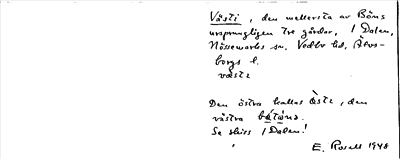 Västi, den mellersta av Böns
ursprungligen tre gårdar, / Dalen,
Nössemarks sn. Vedbo hd, Älvs-
borgs l.
væste
Den östra kallas Àste, den
västra
Se skiss / Dalen!
E. Rosell 1948